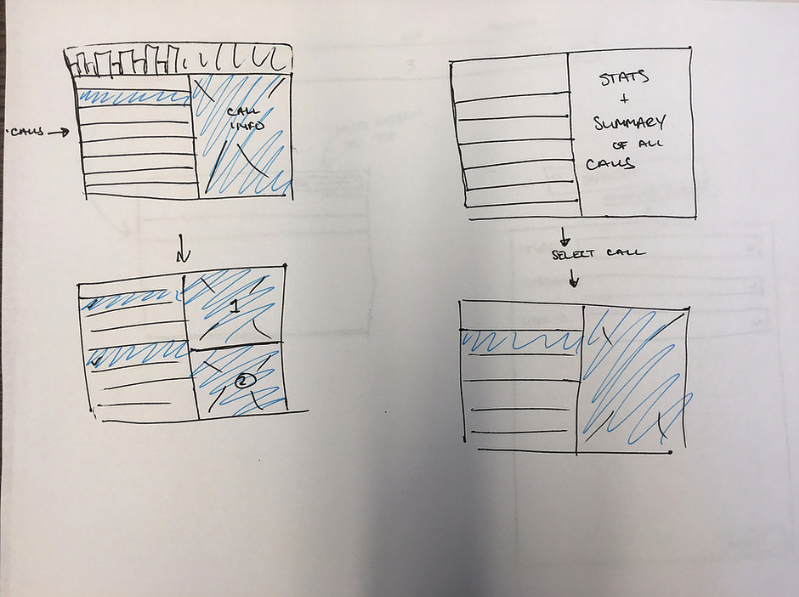 CALLS
CALL
INFO
1
2
STATS
+
SUMMARY
OF ALL
CALLS
SELECT CALL